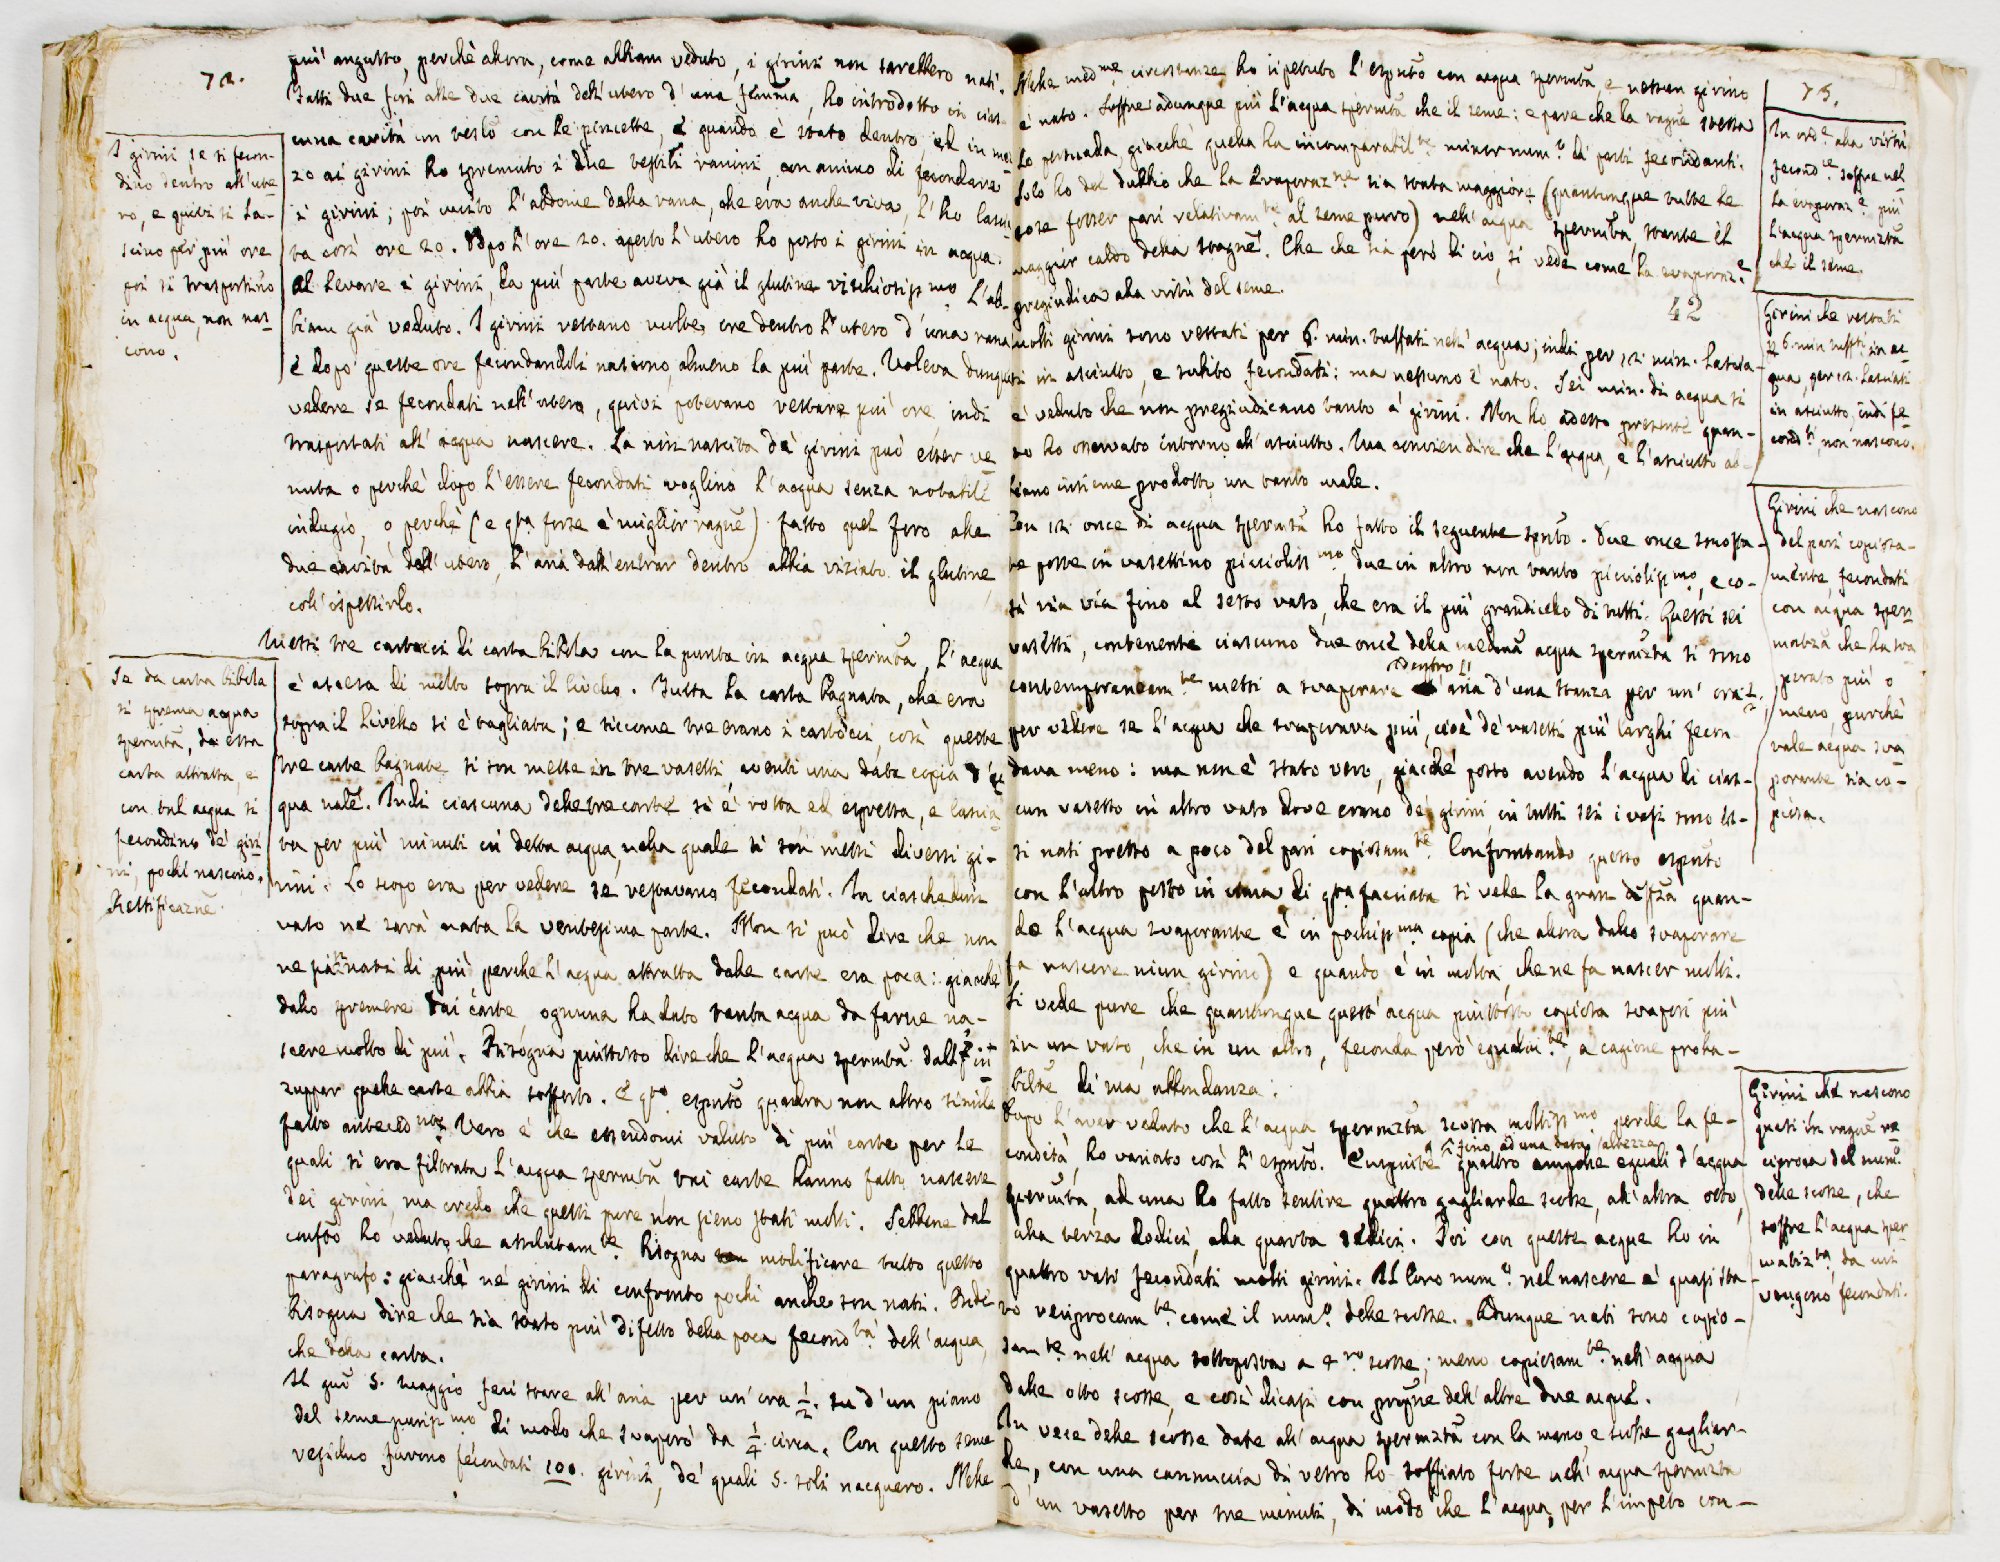 72.
più angusto, perchè allora, come abbiam veduto, i girini non sarebbero nati.
Fatti due fori alle due cavità dell'utero d'una femina, ho introdotto in cias-
cuna cavità un vers͞o con le pinzette, e quando è stato dentro, ed in mez-
zo ai girini ho spremuto i due verstiti ranini, con animo di fecondare
i girini; poi cucito l'addome della rana, che era anche viva, l'ho lascia-
ta così ore 20. Dopo l'ore 20. aperto l'utero ho posto i girini in acqua.
Al levare i girini, la più parte aveva già il glutine vischiosissmo. L'ab-
biam già veduto. I girini restano molte ore dentro l'utero d'una rana
e dopo queste ore fecondandoli nascono, almeno la più parte. Voleva dunque
vedere se fecondati nell'utero, quivi potevano restare più ore, indi
trasportati all'acqua nascere. La non nascita de' girini può esser ve-
nuta o perchè dopo l'essere fecondati voglino l'acqua senza notabile
indugio, o perchè (e qta forse è miglior ragne) fatto quel foro alle
due cavità dell'utero, l'aria dall'entrar dentro abbia viziato il glutine,
coll'ispessirlo.
Messi tre cartocci di carta bibola con la punta in acqua spermta, l'acqua
è ascesa di molto sopra il livello. Tutta la carta bagnata, che era
sopra il livello si è tagliata; e siccome tre erano i cartocci, così queste
tre carte bagnate si son messe in tre vasetti aventi una data copia d'ac-
qua nale. Indi ciascuna delle tre carte si è rotta ed espressa, e lascia-
ta per più minuti in detta acqua, nella quale si son messi diversi gi-
rini. Lo scopo era per vedere se restavano fecondati. In ciaschedun
vaso ne sarà nata la ventesima parte. Non si può dire che non
ne sia nati di più, perchè l'acqua attratta dalle carte era poca: giacchè
dallo spremere tai carte, ognuna ha dato tanta acqua da farne na-
scere molto di più. Bisogna piuttosto dire che l'acqua spermta dall'in-
zuppar quelle carte abbia sofferto. E qto espmto quadra non altro simile
fatto anteced.nte Vero è che essendomi valuto di più carte per le
quali si era filtrata l'acqua spermta, tai carte hanno fatto nascere
dei girini, ma credo che questi pure non sieno stati molti. Sebbene dal
confto ho veduto che assolutamte bisogna modificare tutto questo
paragrafo: giacchè ne' girini di confronto pochi anche son nati. Onde
bisogna dire che sia stato più difetto della poca fecondtà dell'acqua,
che della carta.
Il giō 5. Maggio feci stare all'aria per un'ora ½. su d'un piano
del seme purissmo di modo che svaporò da ¼ circa. Con questo seme
residuo furono fecondati 100. girini, de' quali 5. soli nacquero. Nelle
I girini se si fecon-
dino dentro all'ute-
ro, e quivi si la-
scino per più ore
poi si trasportino
in acqua, non nas-
cono.
Se da carta bibola
si sprema acqua
spermta, da essa
carta attratta, e
con tal acqua si
fecondino de' giri-
ni, pochi nascono.
Rettificazne
73.
Nelle medme circostanze ho ripetuto l'espmto con acqua spermta, e nessun girino
è nato. Soffre adunque più l'acqua spermta che il seme: e pare che la ragne stessa
lo persuada, giacchè quella ha incomparabilte minor numo di parti fecondanti.
Solo ho del dubbio che la evaporazne sia stata maggiore (quantunque tutte le
cose fosser pari relativamte al seme puro) nell'acqua spermta, stante il
maggior caldo della stagne. Che che sia però di ciò, si vede come la evaporaze
pregiudica alla virtù del seme.
42
Molti girini sono restati per 6. min. tuffati nell'acqua; indi per 12 min. lascia-
ti in asciutto, e subito fecondati: ma nessuno è nato. Sei min. di acqua si
è veduto che non pregiudicano tanto a' girini. Non ho adesso presente quan-
to ho osservato intorno all'asciutto. Ma convien dire che l'acqua, e l'asciutto ab-
biano insieme prodotto un tanto male.
Con 12 once di acqua spermta ho fatto il seguente spmto. Due once sono sta-
te poste in vasettino piccolissmo, due in altro non tanto picciolissmo, e co-
sì via via fino al sesto vaso, che era il più grandicello di tutti. Questi sei
vasetti, contenenti ciascuno due once della medma acqua spermta si sono
contemporaneamte messi a svaporare dentro l'aria d'una stanza per un'ora ½,
per vedere se l'acqua che svaporava più, cioè de' vasetti più larghi fecon-
dava meno: ma non è stato vero, giacchè posto avendo l'acqua di cias-
cun vasetto in altro vaso dove erano de' girini, in tutti sei i vasi sono es-
si nati presso a poco del pari copiosamte. Confrontando questo espmto
con l'altro posto in cima di qta facciata si vede la gran diffza quan-
do l'acqua svaporante è in pochissma copia (che allora dallo svaporare
fa nascere niun girino) e quando è in molta, che ne fa nascer molti.
Si vede pure che quantunque quest'acqua piuttosto copiosa svapori più
in un vaso, che in un altro, feconda però egualmte, a cagione proba-
bilte di sua abbondanza.
Dopo l'aver veduto che l'acqua spermta scossa moltissmo perde la fe-
condità, ho variato così l'espmto. Empiute fino ad una data altezza quattro ampolle eguali d'acqua
spermta, ad una ho fatto sentire quattro gagliarde scosse, all'altra otto,
alla terza dodici, alla quarta sedici. Poi con queste acque ho in
quattro vasi fecondati molti girini. Il loro numo nel nascere è quasi sta-
to reciprocamte come il numo delle scosse. Adunque nati sono copio-
samte nell'acqua sottoposta a 4ro scosse; meno copiosamte nell'acqua
dalle otto scosse, e così dicasi con propne dell'altre due acque.
In vece delle scosse date all'acqua spermta con la mano, e scosse gagliar-
de, con una cannuccia di vetro ho soffiato forte nell'acqua spermta
d'un vasetto per tre minuti, di modo che l'acqua, per l'impeto con-
In orde alla virtù
feconde soffre nel-
la evaporaze più
l'acqua spermta
che il seme.
Girini che restati
p 6. min tuffti in ac-
qua, per 12. lasciati
in asciutto, indi fe-
condti, non nascono.
Girini che nascono
del pari copiosa-
mente, fecondati
con acqua sper-
matza che ha sva-
porato più o
meno, purchè
tale acqua sva-
porante sia co-
piosa.
Girini che nascono
quasi in ragne re-
ciproca del numo
delle scosse, che
soffre l'acqua sper-
matizta, da cui
vengono fecondati.